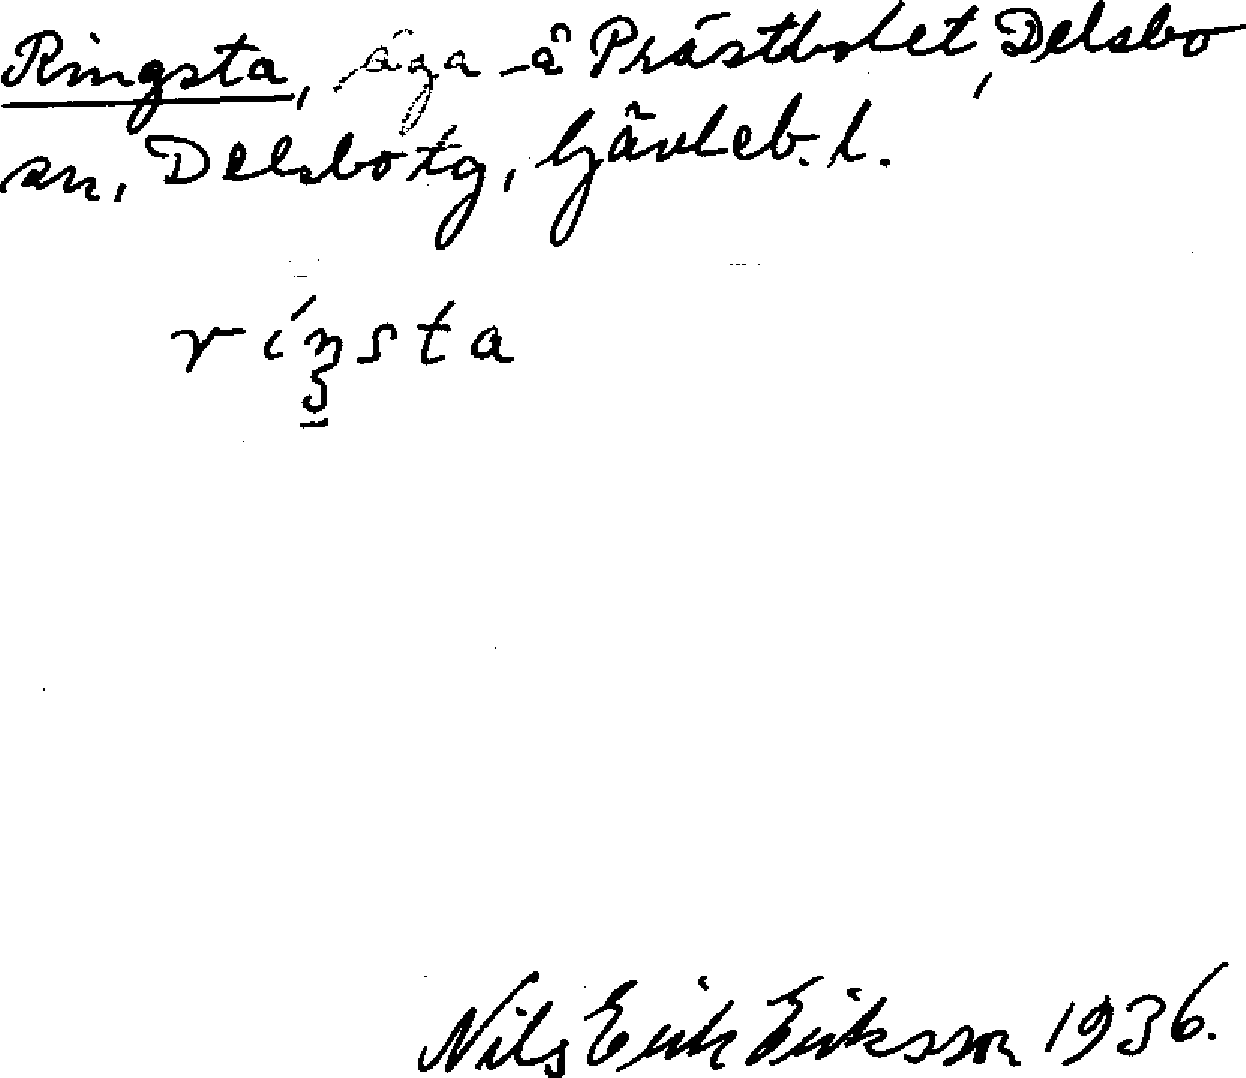 Ringsta, äga å Prästbolet, Delsbo
sn, Delsbo tg, Gävleb. l.
ríŋsta
Nils Erik Eriksson 1936.